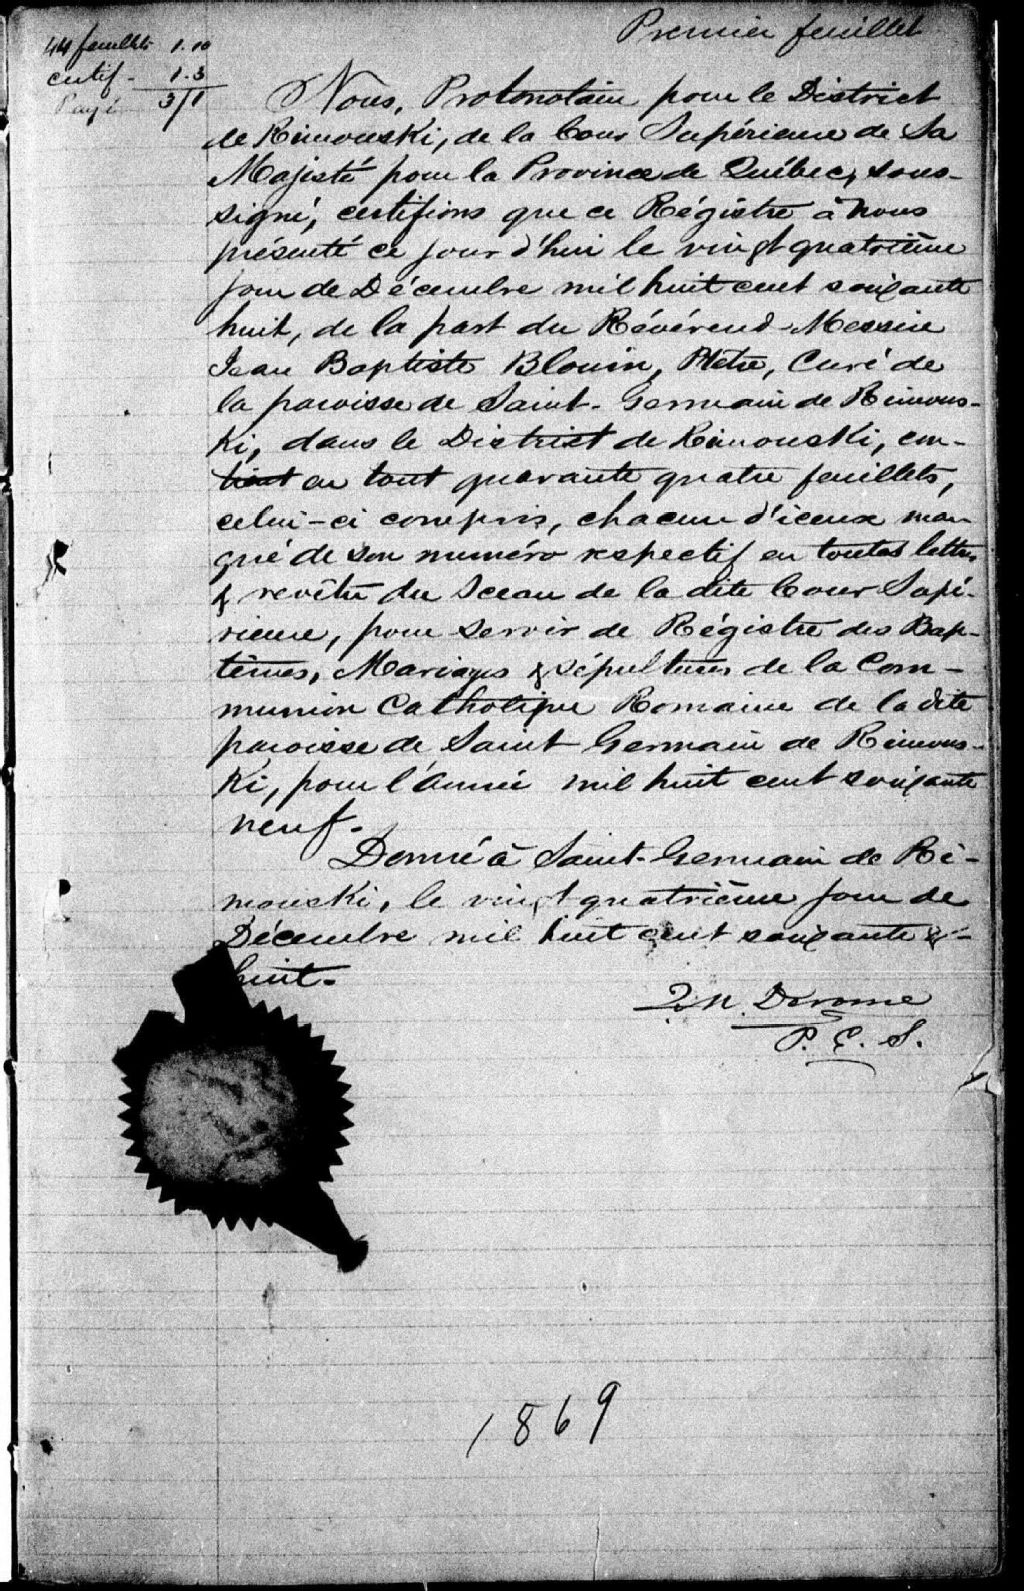 Premier feuillet
44 feuillets 1.10
certif - 1.3
Payé 3/1
Nous, Protonotaire pour le District
de Rimouski, de la Cour Supérieure de Sa
Majesté pour la Province de Québec, sous-
signé, certifions que ce Régistre à nous
présenté ce jour d'hui le vingt quatrième
jour de Décembre mil huit cent soixante
huit, de la part du Révérend Messire
Jean Baptiste Blouin, Ptetre, Curé de
la paroisse de Saint-Germain de Rimous-
ki, dans le District de Rimouski, con-
tient en tout quarante quatre feuillets,
celui-ci compris, chacun d'iceux mar
qué de son numéro respectif en toutes lettres
& revêtu du Sceau de la dite Cour Supé-
rieure, pour servir de Régistre des Bap-
têmes, Mariages & sépultures de la Com-
munion Catholique Romaine de la dite
paroisse de Saint Germain de Rimous-
ki, pour l'année mil huit cent soixante
neuf.
Donné à Saint-Germain de Ri-
mouski, le vingt quatrième jour de
Décembre mil huit cent soixante &-
huit.
Derome
P. C. S.
1869